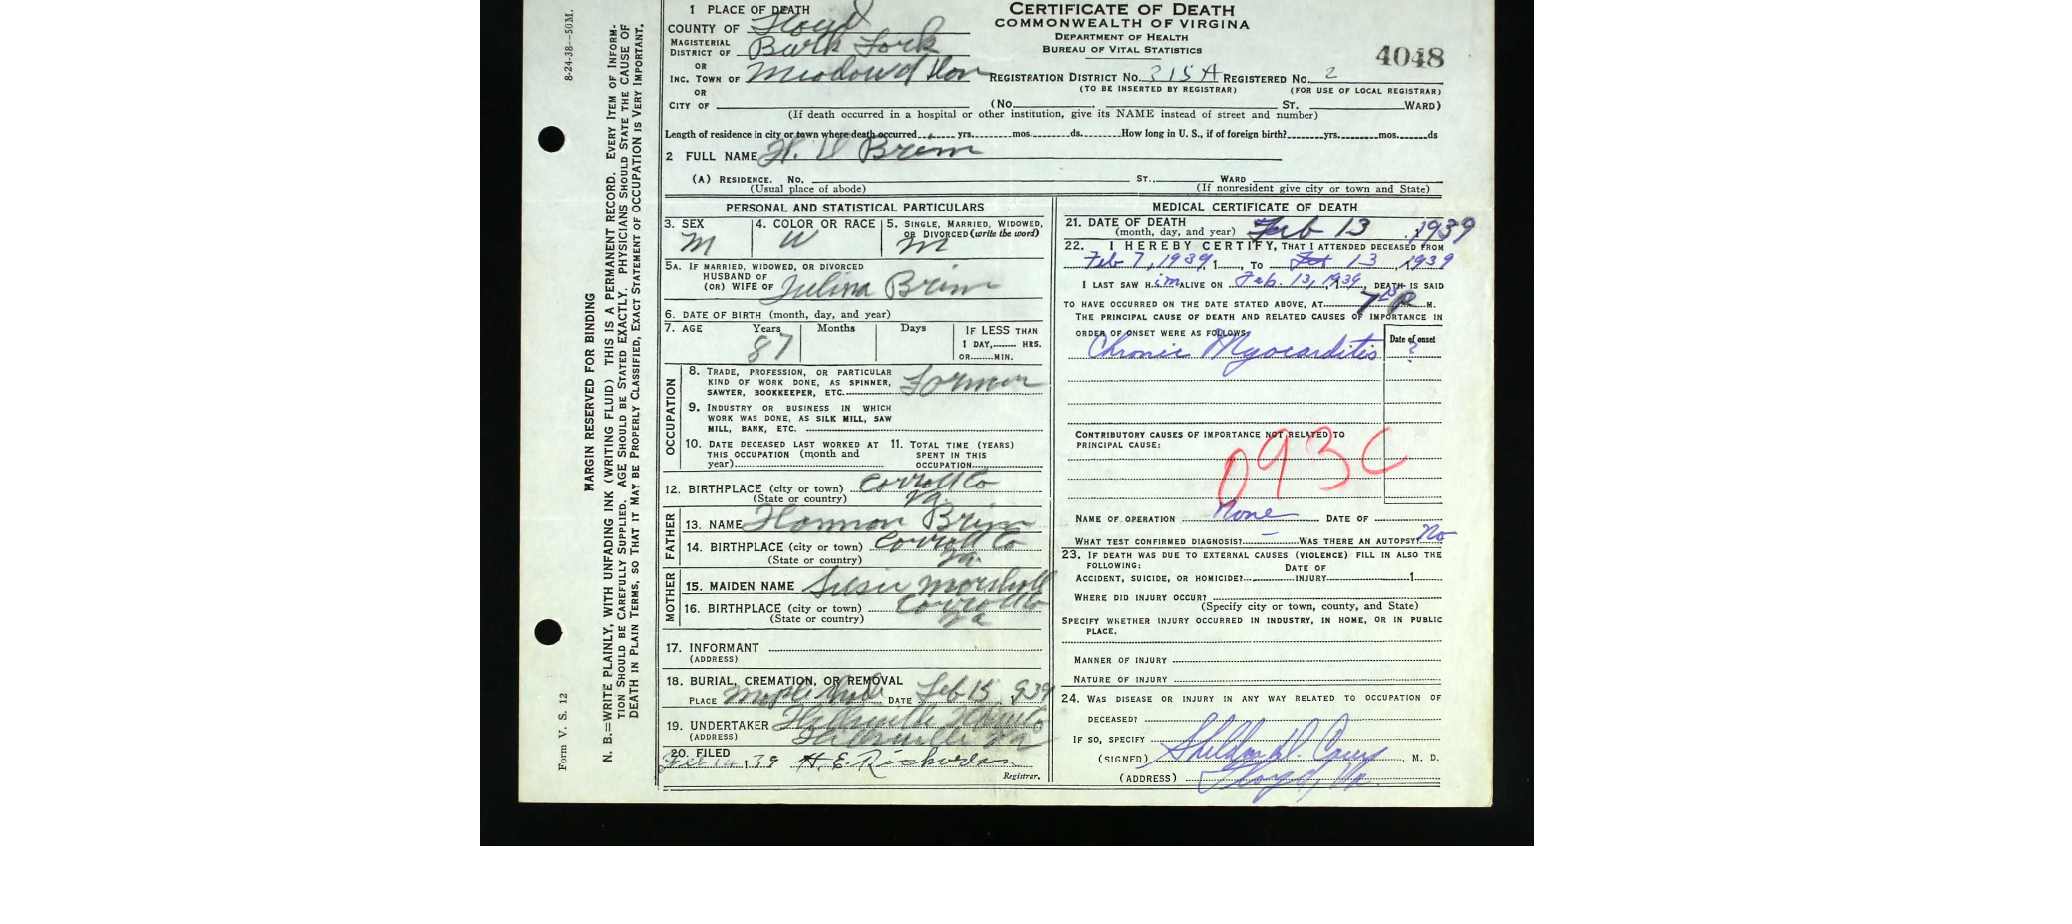 8-24-38—50M.
Form V. S. 12
MARGIN RESERVED FOR BINDING
N. B.—WRITE PLAINLY, WITH UNFADING INK (WRITING FLUID) THIS IS A PERMANENT RECORD. EVERY ITEM OF INFORM-
TION SHOULD BE CAREFULLY SUPPLIED. AGE SHOULD BE STATED EXACTLY. PHYSICIANS SHOULD STATE THE CAUSE OF
DEATH IN PLAIN TERMS, SO THAT IT MAY BE PROPERLY CLASSIFIED, EXACT STATEMENT OF OCCUPATION IS VERY IMPORTANT.
CERTIFICATE OF DEATH
COMMONWEALTH OF VIRGINA
DEPARTMENT OF HEALTH
BUREAU OF VITAL STATISTICS
4048
1 PLACE OF DEATH
COUNTY OF Floyd
MAGISTERIAL
DISTRICT OF Burk Fork
OR
INC. TOWN OF REGISTRATION DISTRICT NO. 315A REGISTERED NO. 2
(TO BE INSERTED BY REGISTRAR) (FOR USE OF LOCAL REGISTRAR)
OR
CITY OF (No. ST. WARD)
(If death occurred in a hospital or other institution, give its NAME instead of street and number)
Length of residence in city or town where death occurred yrs. mos. ds. How long in U. S., if of foreign birth? yrs. mos. ds
2 FULL NAME H. D Brim
(A) RESIDENCE. No. ST., WARD
(Usual place of abode) (If nonresident give city or town and State)
PERSONAL AND STATISTICAL PARTICULARS
3. SEX 4. COLOR OR RACE 5. SINGLE, MARRIED, WIDOWED,
OR DIVORCED (write the word)
M W M
5A. IF MARRIED, WIDOWED, OR DIVORCED
HUSBAND OF
(OR) WIFE OF Julina Brim
6. DATE OF BIRTH (month, day, and year)
7. AGE Years Months Days IF LESS THAN
1 DAY, HRS.
OR MIN.
87
OCCUPATION
8. TRADE, PROFESSION, OR PARTICULAR
KIND OF WORK DONE, AS SPINNER,
SAWYER, BOOKKEEPER, ETC. Farmer
9. INDUSTRY OR BUSINESS IN WHICH
WORK WAS DONE, AS SILK MILL, SAW
MILL, BANK, ETC.
10. DATE DECEASED LAST WORKED AT 11. TOTAL TIME (YEARS)
THIS OCCUPATION (month and SPENT IN THIS
year) OCCUPATION
12. BIRTHPLACE (city or town) Carroll Co
(State or country) Va.
FATHER
13. NAME Harmon Brim
14. BIRTHPLACE (city or town) Carroll Co
(State or country) Va
MOTHER
15. MAIDEN NAME Susie Marshall
16. BIRTHPLACE (city or town) Carroll Co
(State or country) Va
17. INFORMANT
(ADDRESS)
18. BURIAL, CREMATION, OR REMOVAL
PLACE Maple Shade DATE Feb 15, 939
19. UNDERTAKER Hillsville
(ADDRESS) Hillsville Va
20. FILED
39 H. E. Richardson
Registrar.
MEDICAL CERTIFICATE OF DEATH
21. DATE OF DEATH
(month, day, and year) Feb 13, 1939
22. I HEREBY CERTIFY, THAT I ATTENDED DECEASED FROM
Feb 7, 1939, 1, TO 13, 1939
I LAST SAW H im ALIVE ON Feb. 13, 1939, DEATH IS SAID
TO HAVE OCCURRED ON THE DATE STATED ABOVE, AT 7 P M.
THE PRINCIPAL CAUSE OF DEATH AND RELATED CAUSES OF IMPORTANCE IN
ORDER OF ONSET WERE AS FOLLOWS: Date of onset
Chronic Myocarditis ?
CONTRIBUTORY CAUSES OF IMPORTANCE NOT RELATED TO
PRINCIPAL CAUSE:
093C
NAME OF OPERATION None DATE OF
WHAT TEST CONFIRMED DIAGNOSIS? — WAS THERE AN AUTOPSY? No
23. IF DEATH WAS DUE TO EXTERNAL CAUSES (VIOLENCE) FILL IN ALSO THE
FOLLOWING: DATE OF
ACCIDENT, SUICIDE, OR HOMICIDE? INJURY 1
WHERE DID INJURY OCCUR?
(Specify city or town, county, and State)
SPECIFY WHETHER INJURY OCCURRED IN INDUSTRY, IN HOME, OR IN PUBLIC
PLACE.
MANNER OF INJURY
NATURE OF INJURY
24. WAS DISEASE OR INJURY IN ANY WAY RELATED TO OCCUPATION OF
DECEASED?
IF SO, SPECIFY
(SIGNED) M. D.
(ADDRESS) Floyd, Va.